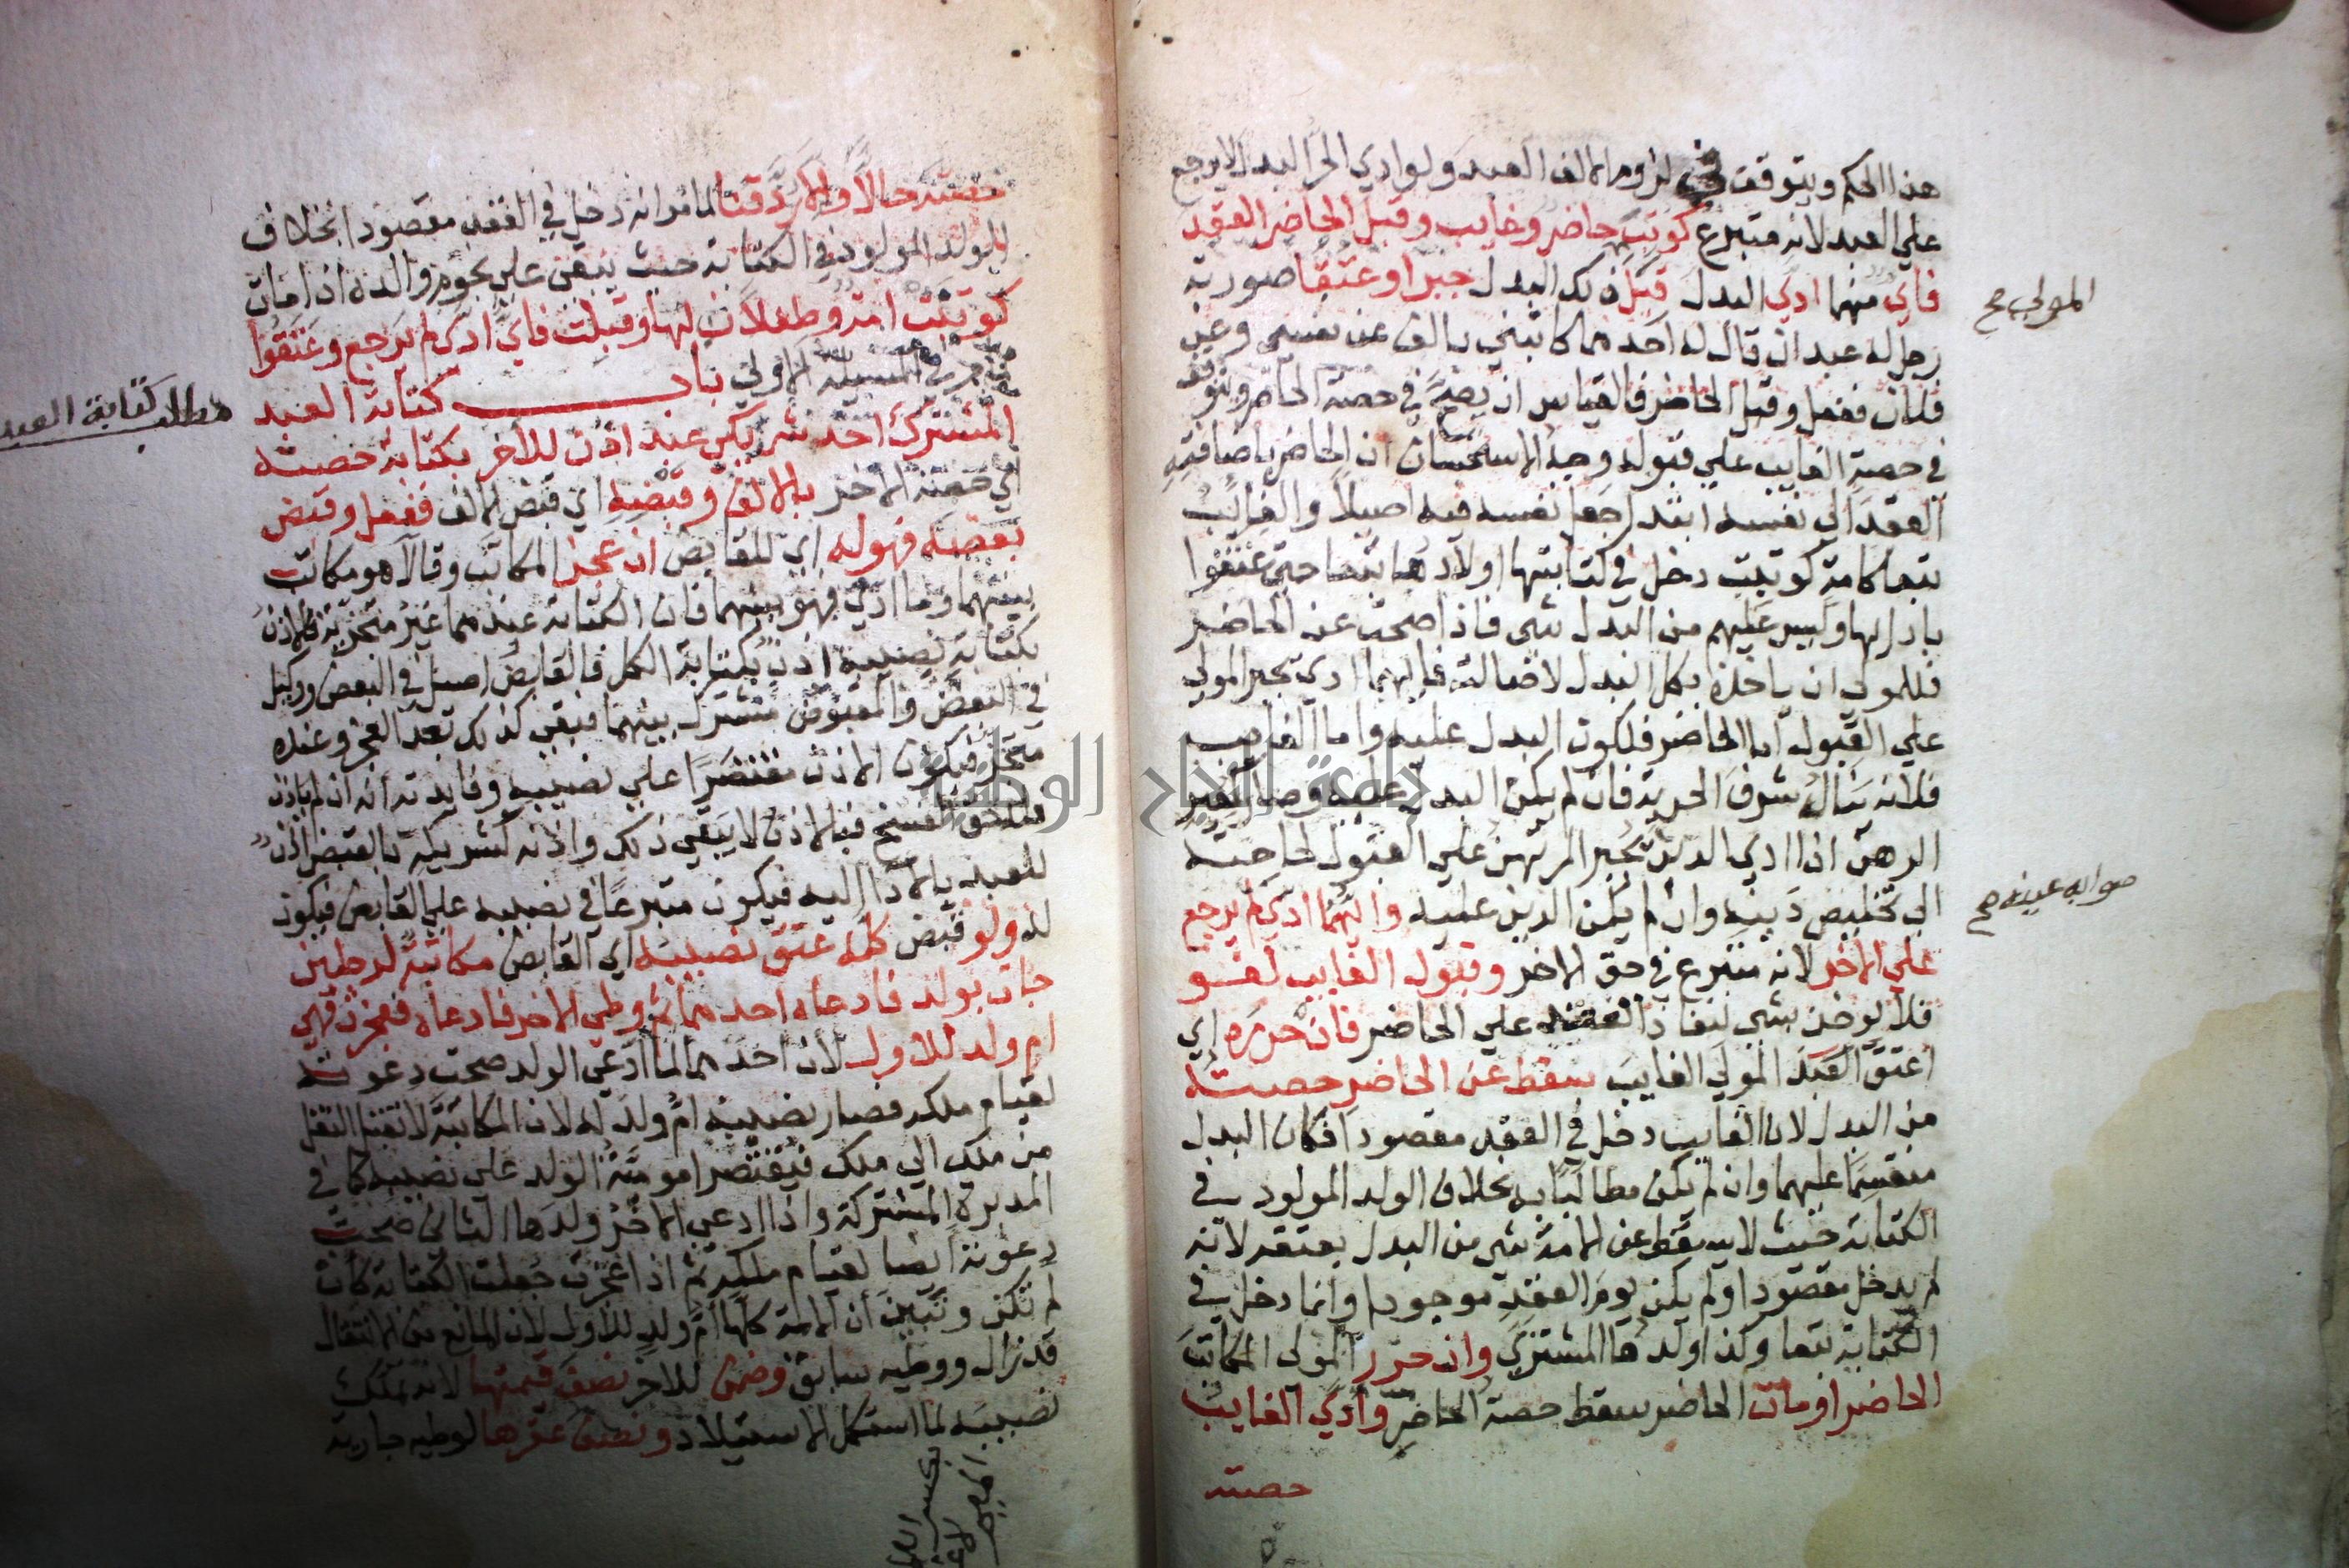 هذا الحكم ويتوقف في لزوم الالف العبد ولو ادي الحر البدل لا يرجع
علي العبد لانه متبرع كوتب حاضر وغايب وقبل الحاضر العقد
فاي منهما ادي البدل قبل ذلك البدل جبرا وعتقا صورته
المولي صح
رجل له عبدان قال له احدهما كاتبني بالف عن نفسي وعن
فلان ففعل وقبل الحاضر فالقياس ان يصح في حصة الحاضر ويتوقف
في حصة الغايب علي قبوله وجه الاستحسان ان الحاضر باضافته
العقد الي نفسه ابتدا جعل نفسه فيه اصيلا والغايب
تبعا كامة كوتبت دخل في كتابتها اولادها تبعا حتي عتقوا
بادايها وليس عليهم من البدل شي فاذا صحت عن الحاضر
فللمولي ان ياخذه بكل البدل لاصالته فايهما ادي يجبر المولي
علي القبول اما الحاضر فلكون البدل عليه واما الغايب
فلانه ينال شرف الحرية فان لم يكن البدل عليه وصار كمعير
الرهن اذا ادي الدين يجبر المرتهن علي القبول لحاجته
الي تخليص دينه وان لم يكن الدين عليه وايهما ادي لم يرجع
صوابه عينه صح
علي الاخر لانه متبرع في حق الاخر وقبول الغايب لغو
فلا يوخذ بشي لنفاذ العقد علي الحاضر فان حرره اي
اعتق العبد المولي الغايب سقط عن الحاضر حصته
من البدل لان الغايب دخل في العقد مقصودا فكان البدل
منقسما عليهما وان لم يكن مطالبا به بخلاف الولد المولود في
الكتابة حيث لا يسقط عن الامة شي من البدل بعتقه لانه
لم يدخل مقصودا ولم يكن يوم العقد موجودا وانما دخل في
الكتابة تبعا وكذا ولدها المشتري وان حرر المولي المكاتب
الحاضر او مات الحاضر سقط حصة الحاضر وادي الغايب
حصته
حصته حالا والا رد قنا لما مر انه دخل في العقد مقصودا بخلاف
الولد المولود في الكتابة حيث يبقي علي نجوم والده اذا مات
كوتبت امة وطفلان لها وقبلت فاي ادي لم يرجع وعتقوا
مر في المسيلة الاولي باب كتابة العبد
مطلب كتابة العبد
المشترك احد شريكي عبد اذن للاخر بكتابة حصته
اي حصة الاخر بالالف وقبضه اي قبض الالف ففعل وقبض
بعضه فهو له اي للقابض ان عجز المكاتب وقالا هو مكاتب
بينهما وما ادي فهو بينهما فان الكتابة عندهما غير متجزية فالاذن
بكتابة نصيبه اذن بكتابة الكل فالقابض اصيل في البعض ووكيل
في البعض والمقبوض مشترك بينهما فبقي كذلك بعد العجز وعنده
متجز فيكون الاذن مقتصرا علي نصيبه وفايدته انه ان لم ياذن
فله حق الفسخ فبالاذن لا يبقي ذلك واذنه لشريكه بالقبض اذن
للعبد بالادا اليه فيكون متبرعا في نصيبه علي القابض فيكون
له ولو قبض كله عتق نصيبه اي القابض مكاتبة لرجلين
جات بولد فادعاه احدهما ثم وطي الاخر فادعاه فعجزت فهي
ام ولد للاول لان احدهما لما ادعي الولد صحت دعوته
لقيام ملكه فصار نصيبه ام ولد له لان المكاتبة لا تقبل النقل
من ملك الي ملك فيقتصر امومية الولد علي نصيبه كما في
المدبرة المشتركة واذا ادعي الاخر ولدها الثاني صحت
دعوته ايضا لقيام ملكه ثم اذا عجزت جعلت الكتابة كان
لم تكن وتبين ان الامة كلها ام ولد للاول لان المانع من الانتقال
قد زال ووطيه سابق وضمن للاخر نصف قيمتها لانه تملك
نصيبه لما استكمل الاستيلاد ونصف عقرها لوطيه جارية
جامعة النجاح الوطنية